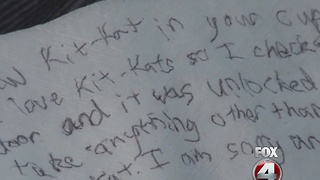 Kit-Kat in your cup
love Kit-Kats so I checked
door and it was unlocked
anything other than
I am sorry and
FOX
4